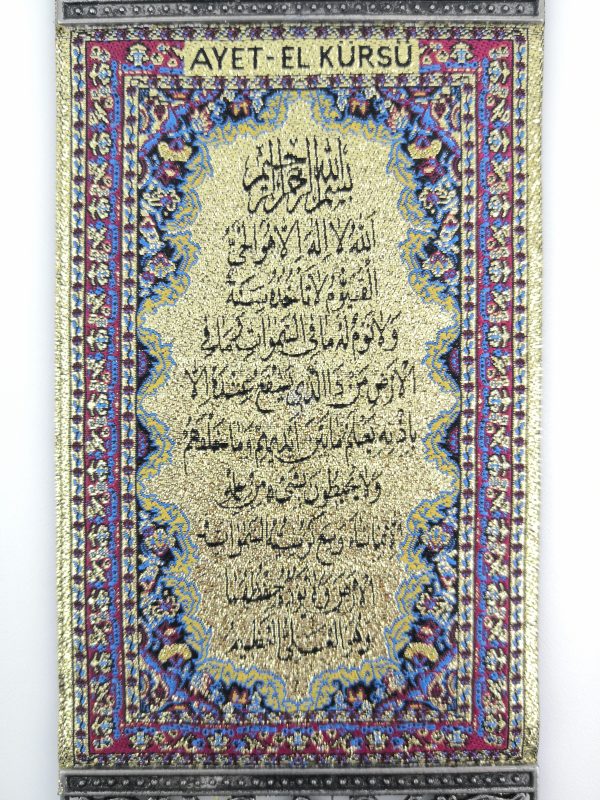 AYET-EL KÜRSÜ
بسم الله الرحمن الرحيم
اَللّٰهُ لَا اِلٰهَ اِلَّا هُوَ الْحَيُّ
الْقَيُّومُ لَا تَأْخُذُهُ سِنَةٌ
وَلَا نَوْمٌ لَهُ مَا فِي السَّمٰوَاتِ وَمَا فِي
الْاَرْضِ مَنْ ذَا الَّذِي يَشْفَعُ عِنْدَهُ اِلَّا
بِاِذْنِهِ يَعْلَمُ مَا بَيْنَ اَيْدِيهِمْ وَمَا خَلْفَهُمْ
وَلَا يُحِيطُونَ بِشَيْءٍ مِنْ عِلْمِهِ
اِلَّا بِمَا شَاءَ وَسِعَ كُرْسِيُّهُ السَّمٰوَاتِ وَ
الْاَرْضَ وَلَا يَؤُدُهُ حِفْظُهُمَا
وَهُوَ الْعَلِيُّ الْعَظِيمُ